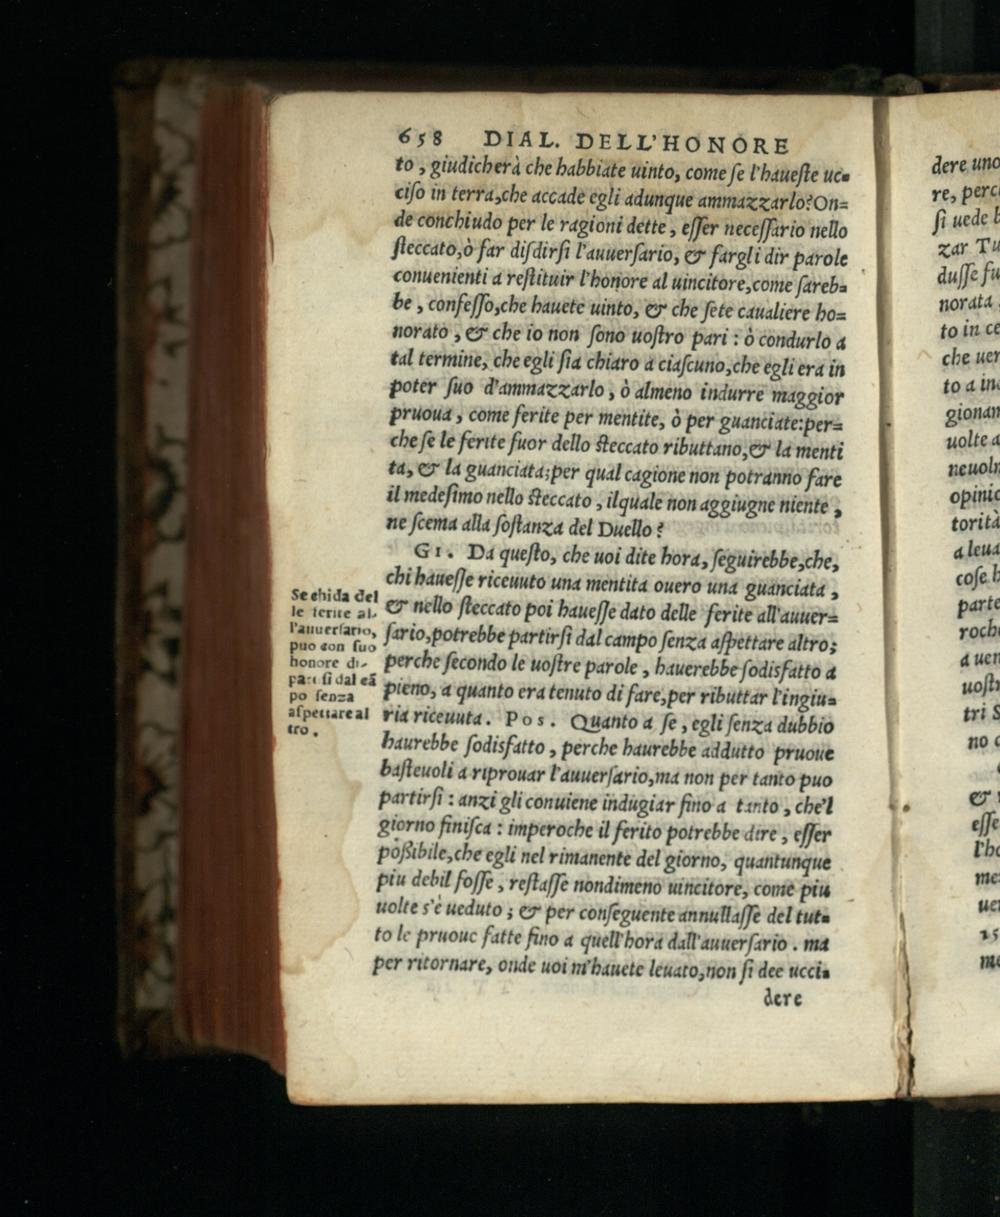 658 DIAL. DELL'HONORE
to, giudicherà che habbiate uinto, come ſe l'haueſte uc=
ciſo in terra, che accade egli adunque ammazzarlo? On=
de conchiudo per le ragioni dette, eſſer neceſſario nello
ſteccato, ò far diſdirſi l'auuerſario, & fargli dir parole
conuenienti a reſtituir l'honore al uincitore, come ſareb=
be, confeſſo, che hauete uinto, & che ſete caualiere ho=
norato, & che io non ſono uoſtro pari: ò condurlo a
tal termine, che egli ſia chiaro a ciaſcuno, che egli era in
poter ſuo d'ammazzarlo, ò almeno indurre maggior
pruoua, come ferite per mentite, ò per guanciate: per=
che ſe le ferite fuor dello ſteccato ributtano, & la menti
ta, & la guanciata; per qual cagione non potranno fare
il medeſimo nello ſteccato, ilquale non aggiugne niente,
ne ſcema alla ſoſtanza del Duello?
GI. Da queſto, che uoi dite hora, ſeguirebbe, che,
chi haueſſe riceuuto una mentita ouero una guanciata,
& nello ſteccato poi haueſſe dato delle ferite all'auuer=
ſario, potrebbe partirſi dal campo ſenza aſpettare altro;
perche ſecondo le uoſtre parole, hauerebbe ſodisfatto a
pieno, a quanto era tenuto di fare, per ributtar l'ingiu=
ria riceuuta. Pos. Quanto a ſe, egli ſenza dubbio
haurebbe ſodisfatto, perche haurebbe addutto pruoue
baſteuoli a riprouar l'auuerſario, ma non per tanto puo
partirſi: anzi gli conuiene indugiar fino a tanto, che'l
giorno finiſca: imperoche il ferito potrebbe dire, eſſer
poßibile, che egli nel rimanente del giorno, quantunque
piu debil foſſe, reſtaſſe nondimeno uincitore, come piu
uolte s'è ueduto; & per conſeguente annullaſſe del tut=
to le pruoue fatte fino a quell'hora dall'auuerſario. ma
per ritornare, onde uoi m'hauete leuato, non ſi dee ucci=
dere
Se chi da del
le ferite al-
l'auuerſario,
puo con ſuo
honore di-
partſi dal cã
po ſenza
aſpettare al
tro.
dere uno
re, perc
ſi uede
zar Tu
duſſe fu
norata
to in ce
che uer
to a in
gionan
uolte a
neuoln
opinio
torità
a leua
coſe h
parte
roche
a uen
uoſtr
tri S
no
&
eſſe
l'ho
me
uer
25
me